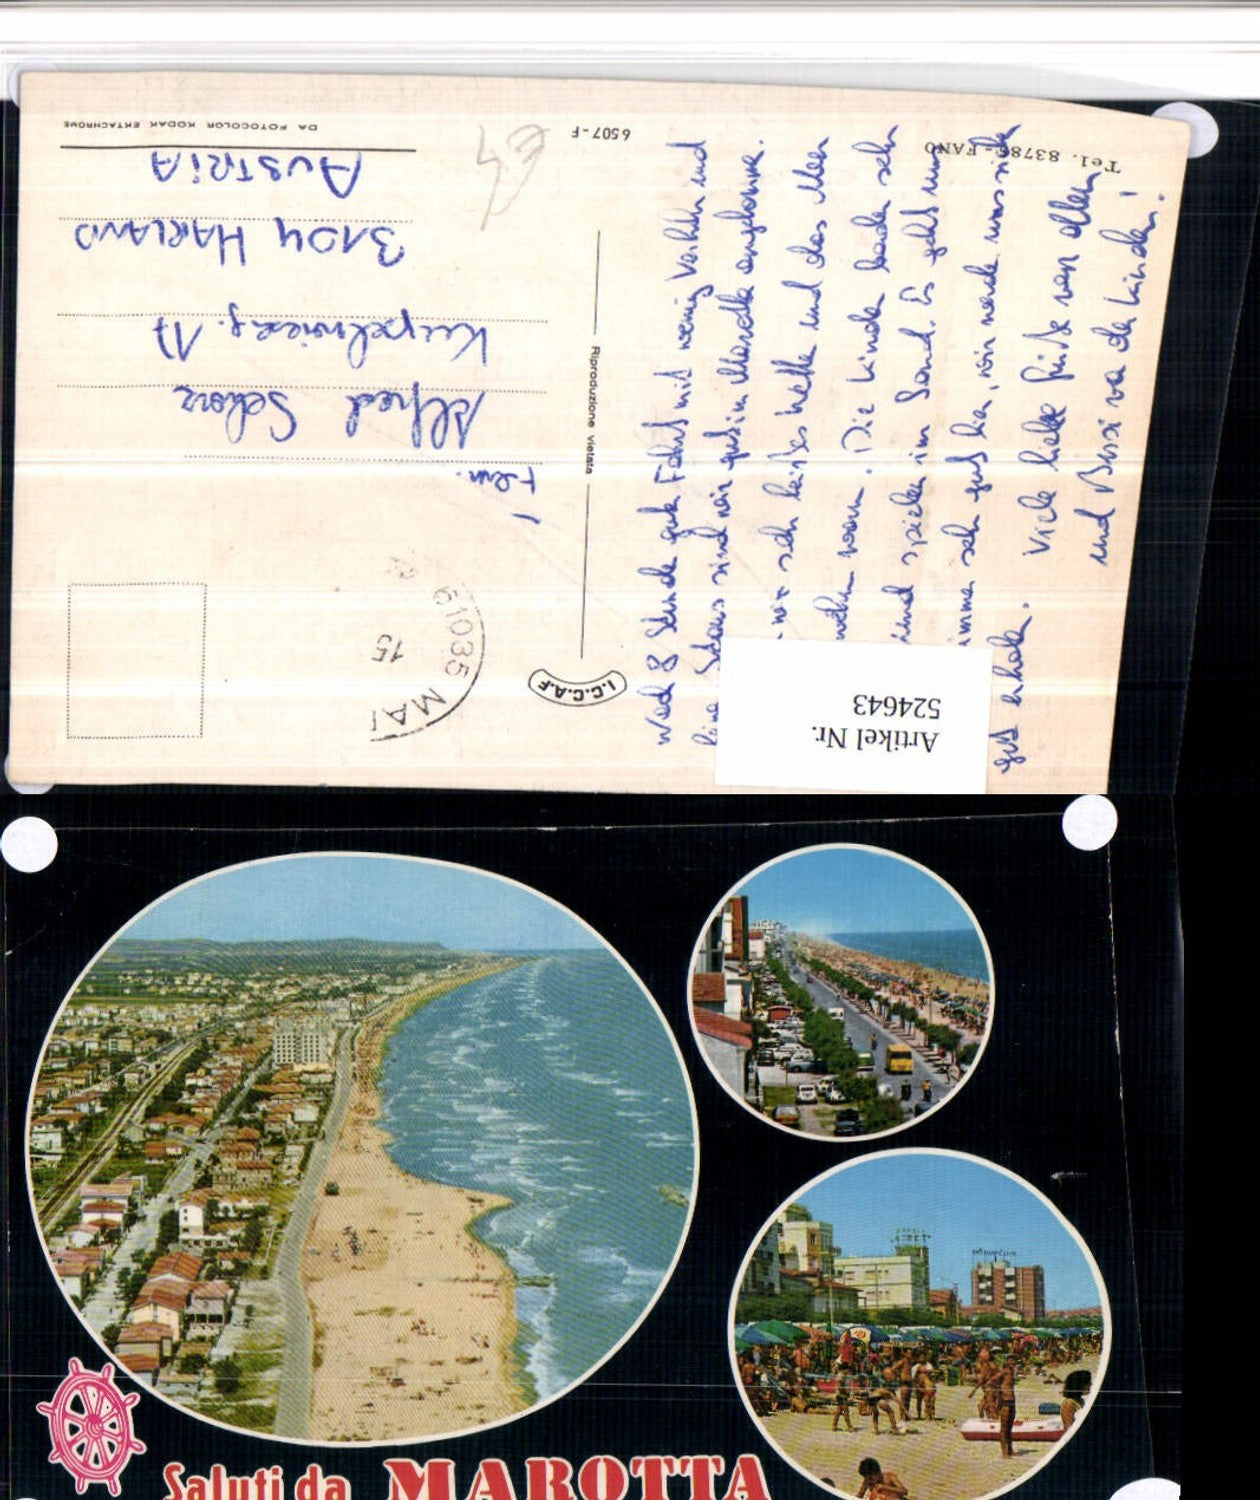 Tel. 83786 - FANO
6507-F
DA FOTOCOLOR KODAK EKTACHROME
Nach 8 Stunde gute Fahrt mit wenig Verkehr und
keine Staus sind wir gut in Marotta angekommen.
wir sehr heißes Wetter und das Meer
warm. Die Kinder baden sehr
und spielen im Sand. Es geht uns
immer sehr gut hier, wir werden uns sehr
gut erholen.
Viele liebe Grüße von allen
und Bussi von den Kindern!
Riproduzione vietata
I.C.C.A.F
61035 MA
15
Fam.
Alfred Schorz
17
3104 HARLAND
AUSTRIA
Artikel Nr.
524643
Saluti da MAROTTA